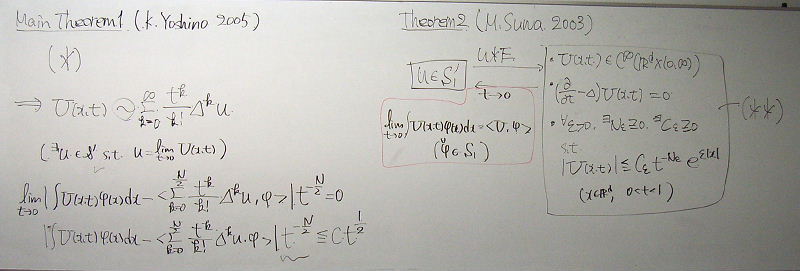 Main Theorem 1 (K. Yoshino 2005)
(※)
⇒ U(x,t) ∼ ∑_{k=0}^{∞} t^k/k! Δ^k u.
(∃u ∈ S' s.t. u = lim_{t→0} U(x,t))
lim_{t→0} | ∫U(x,t)φ(x)dx - <∑_{k=0}^{N/2} t^k/k! Δ^k u, φ> | t^{-N/2} = 0
| ∫U(x,t)φ(x)dx - <∑_{k=0}^{N/2} t^k/k! Δ^k u, φ> | t^{-N/2} ≦ C t^{1/2}
Theorem 2 (M. Suwa. 2003)
u ∈ S_1'
u*E
t→0
lim_{t→0} ∫U(x,t)φ(x)dx = <U, φ>
(∀φ ∈ S_1)
• U(x,t) ∈ C^∞(R^d×(0,∞))
• (∂/∂t - Δ)U(x,t) = 0
• ∀ε>0, ∃N_ε≧0, ∃C_ε≧0
s.t
|U(x,t)| ≦ C_ε t^{-N_ε} e^{ε|x|}
(x∈R^d, 0<t<1)
(※※)